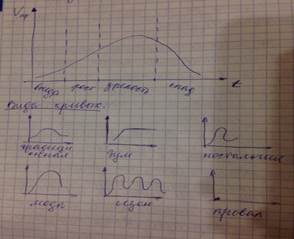 Vпр
t
вывод рост зрелость спад
Виды кривых.
традици
онная
бум
ностальгия
мода
сезон
провал